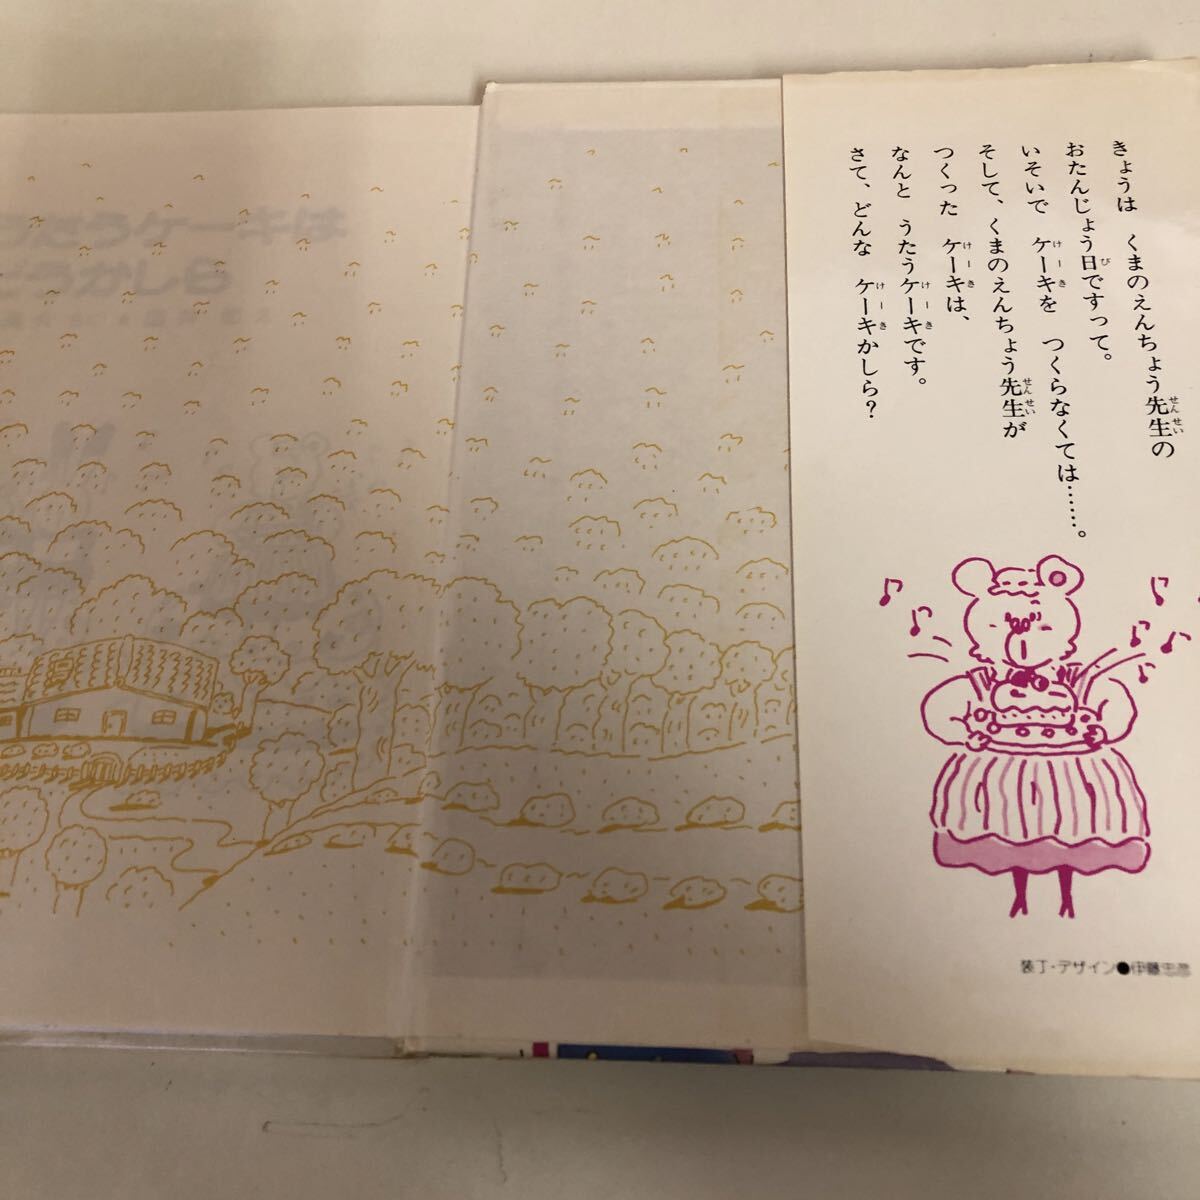 きょうは くまのえんちょう先生の
おたんじょう日ですって。
いそいで ケーキを つくらなくては……。
そして、くまのえんちょう先生が
つくった ケーキは、
なんと うたうケーキです。
さて、どんな ケーキかしら?
装丁・デザイン●伊藤忠彦
うたうケーキは
どうかしら